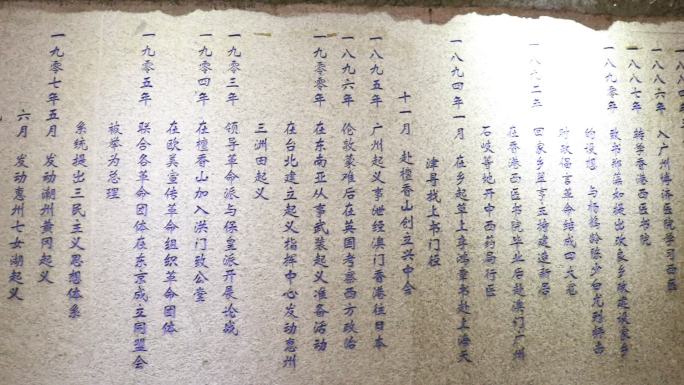 一八八六年 入广州博济医院学习西医
一八八七年 转学香港西医书院
一八九零年 致书郑藻如提出改良乡政建设家乡
的设想 与杨鹤龄陈少白尤列抨击
时政倡言革命结成四大寇
一八九二年 回家乡翠亨主持建造新居
在香港西医书院毕业后赴澳门广州
石岐等地开中西药局行医
一八九四年一月 在乡起草上李鸿章书赴上海天
津寻找上书门径
十一月 赴檀香山创立兴中会
一八九五年 广州起义事泄经澳门香港往日本
一八九六年 伦敦蒙难后在英国考察西方政治
一九零零年 在东南亚从事武装起义准备活动
在台北建立起义指挥中心发动惠州
三洲田起义
一九零三年 领导革命派与保皇派开展论战
一九零四年 在檀香山加入洪门致公堂
在欧美宣传革命组织革命团体
一九零五年 联合各革命团体在东京成立同盟会
被举为总理
系统提出三民主义思想体系
一九零七年五月 发动潮州黄冈起义
六月 发动惠州七女湖起义